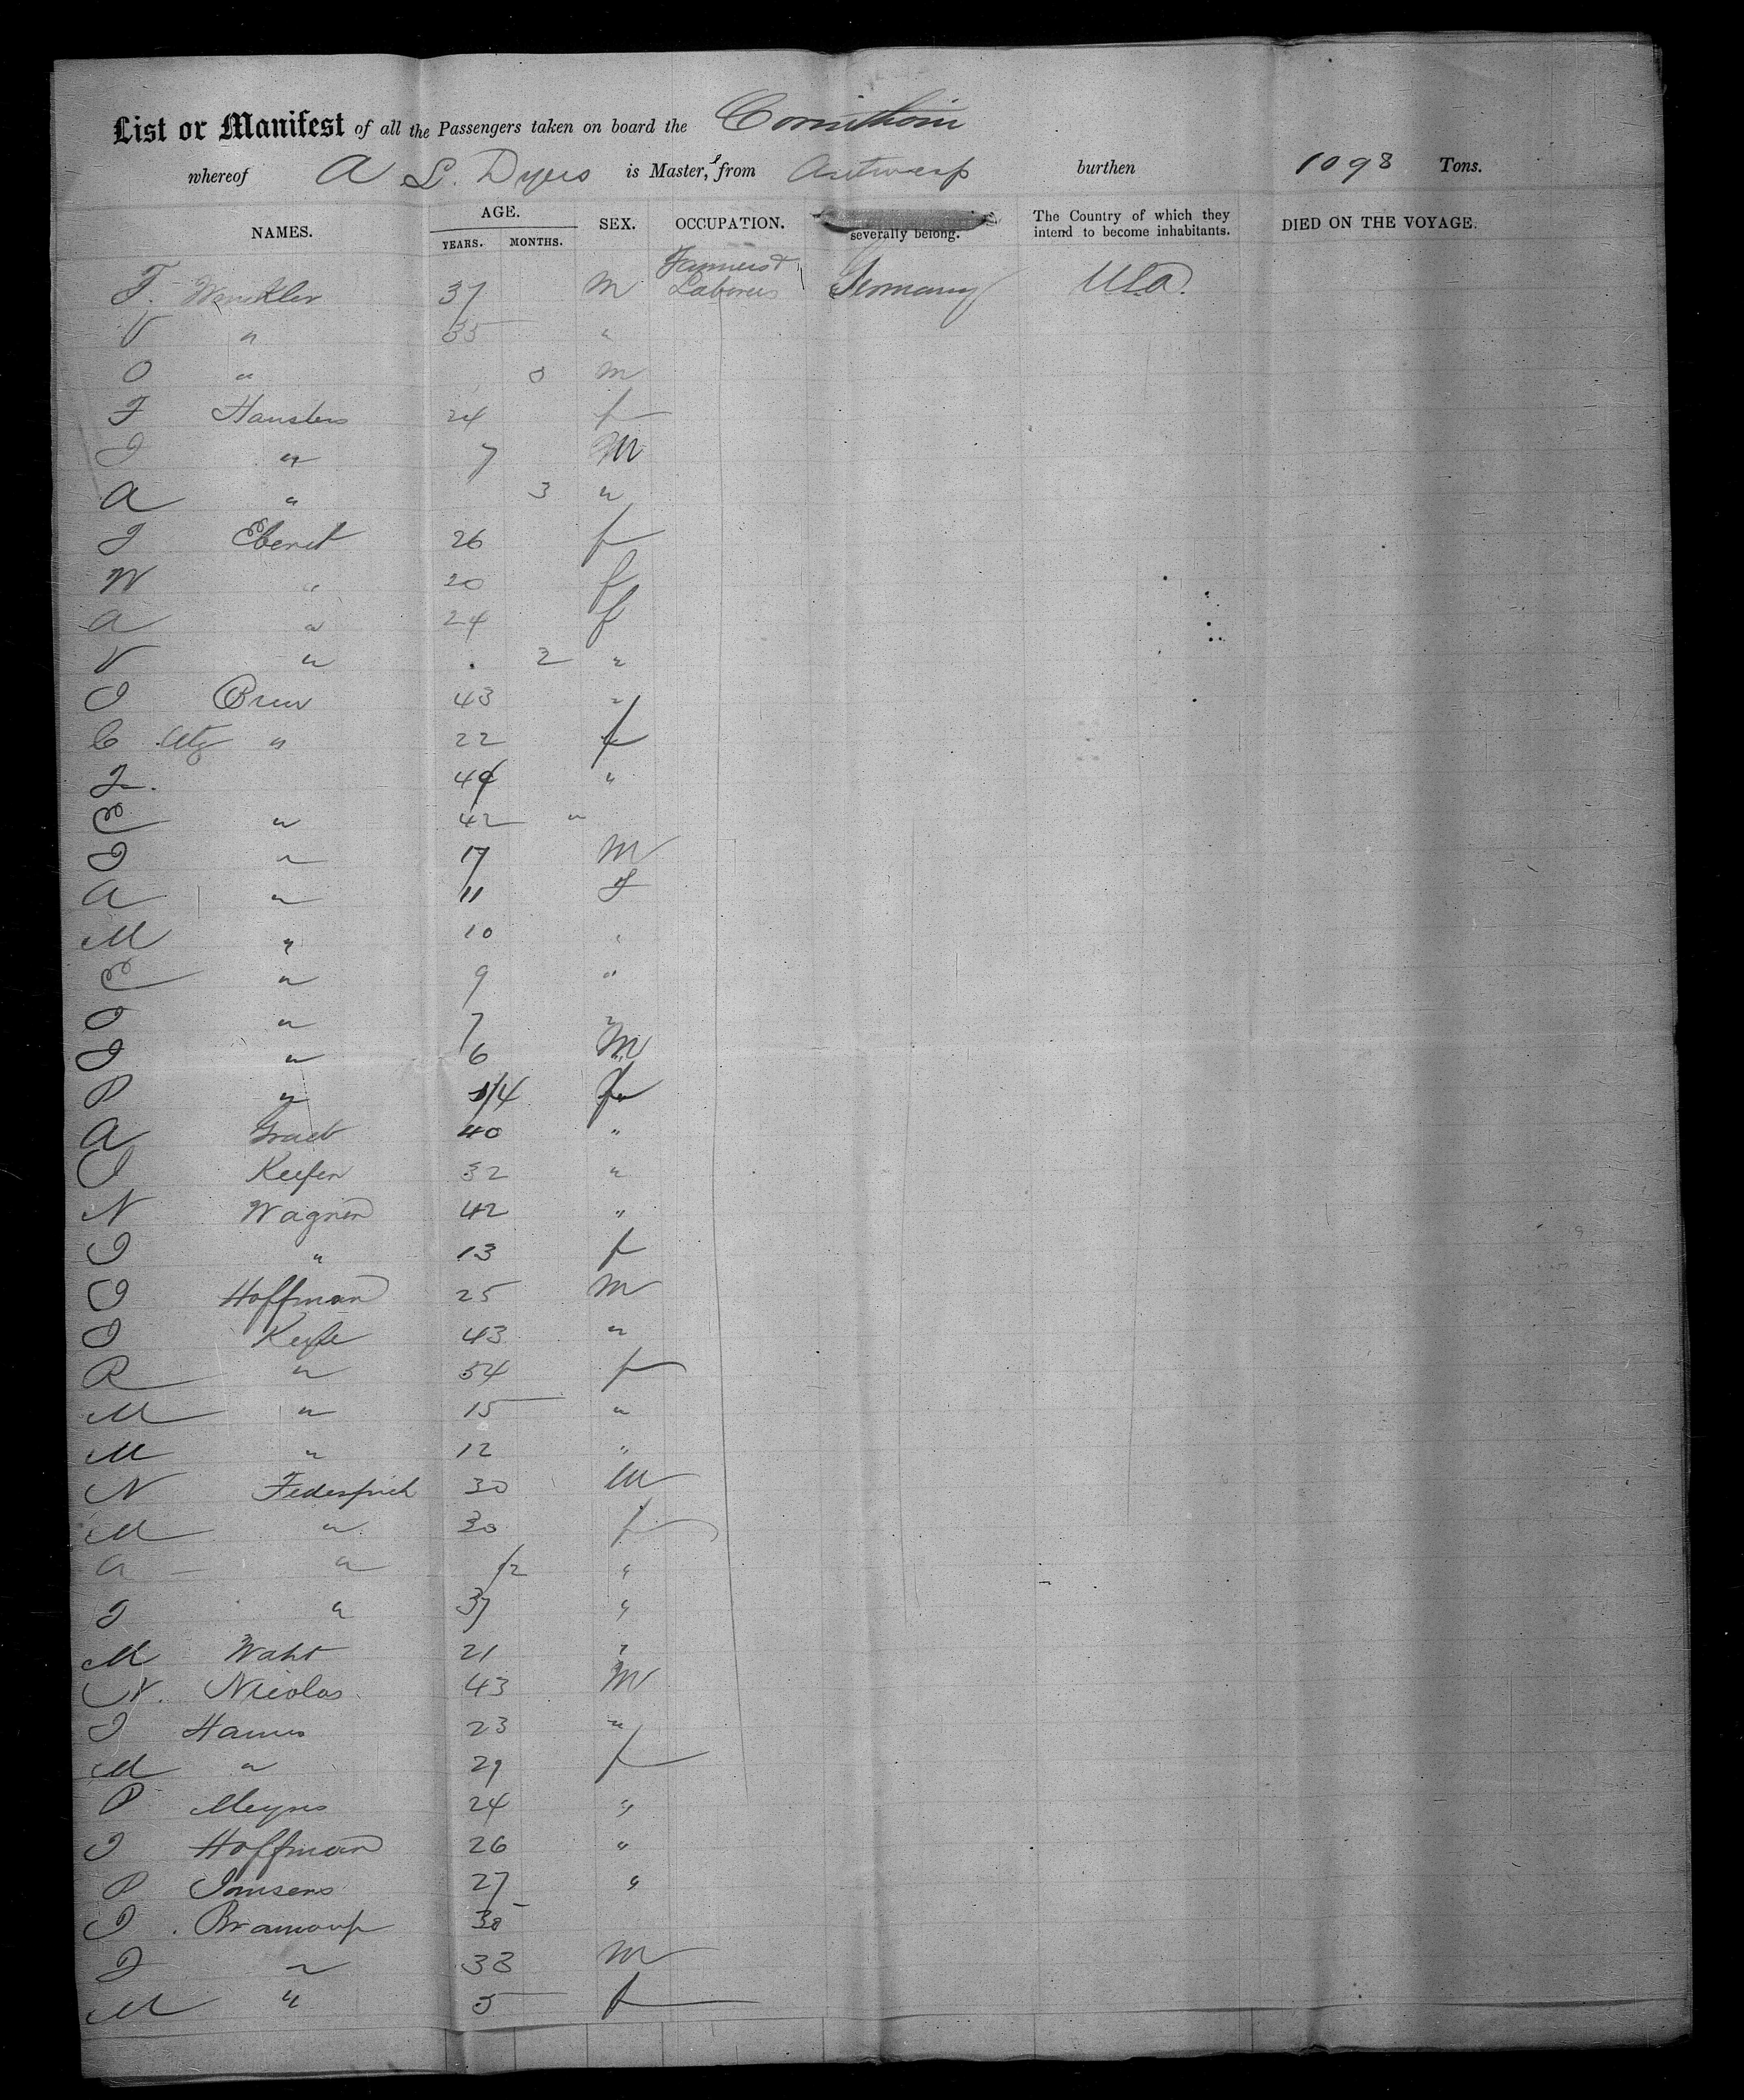 List or Manifest of all the Passengers taken on board the Corinthian
whereof A L. Dyers is Master, from Antwerp burthen 1098 Tons.
NAMES. AGE. YEARS. MONTHS. SEX. OCCUPATION. severally belong. The Country of which they intend to become inhabitants. DIED ON THE VOYAGE.
F. Winkler 37 M Farmers & Laborers Germany USa.
V " 35 "
O " 8 M
F Hausters 24 f
J " 7 M
A " 3 "
J Eberet 26 f
W " 20 f
A " 24 f
V " 2 "
J 43 "
C Utz " 22 f
44 "
E " 42 "
J " 17 M
A " 11 F
M " 10 "
E " 9 "
J " 7 "
J " 6 M
P " 1/4
A 40 "
J Keefer 32 "
N Wagner 42 "
J " 13 f
J Hoffman 25 M
J Keyfe 43 "
R " 54 f
M " 15 "
M " 12 "
N Federspich 30 M
M " 30 f
a " /12 "
J " 37 "
M Waht 21 "
N. Nicolas 43 M
J Hames 23 "
M " 29 f
P Meyers 24 "
J Hoffman 26 "
P Jonsens 27 "
J 30
J " 33 M
M " 5 f